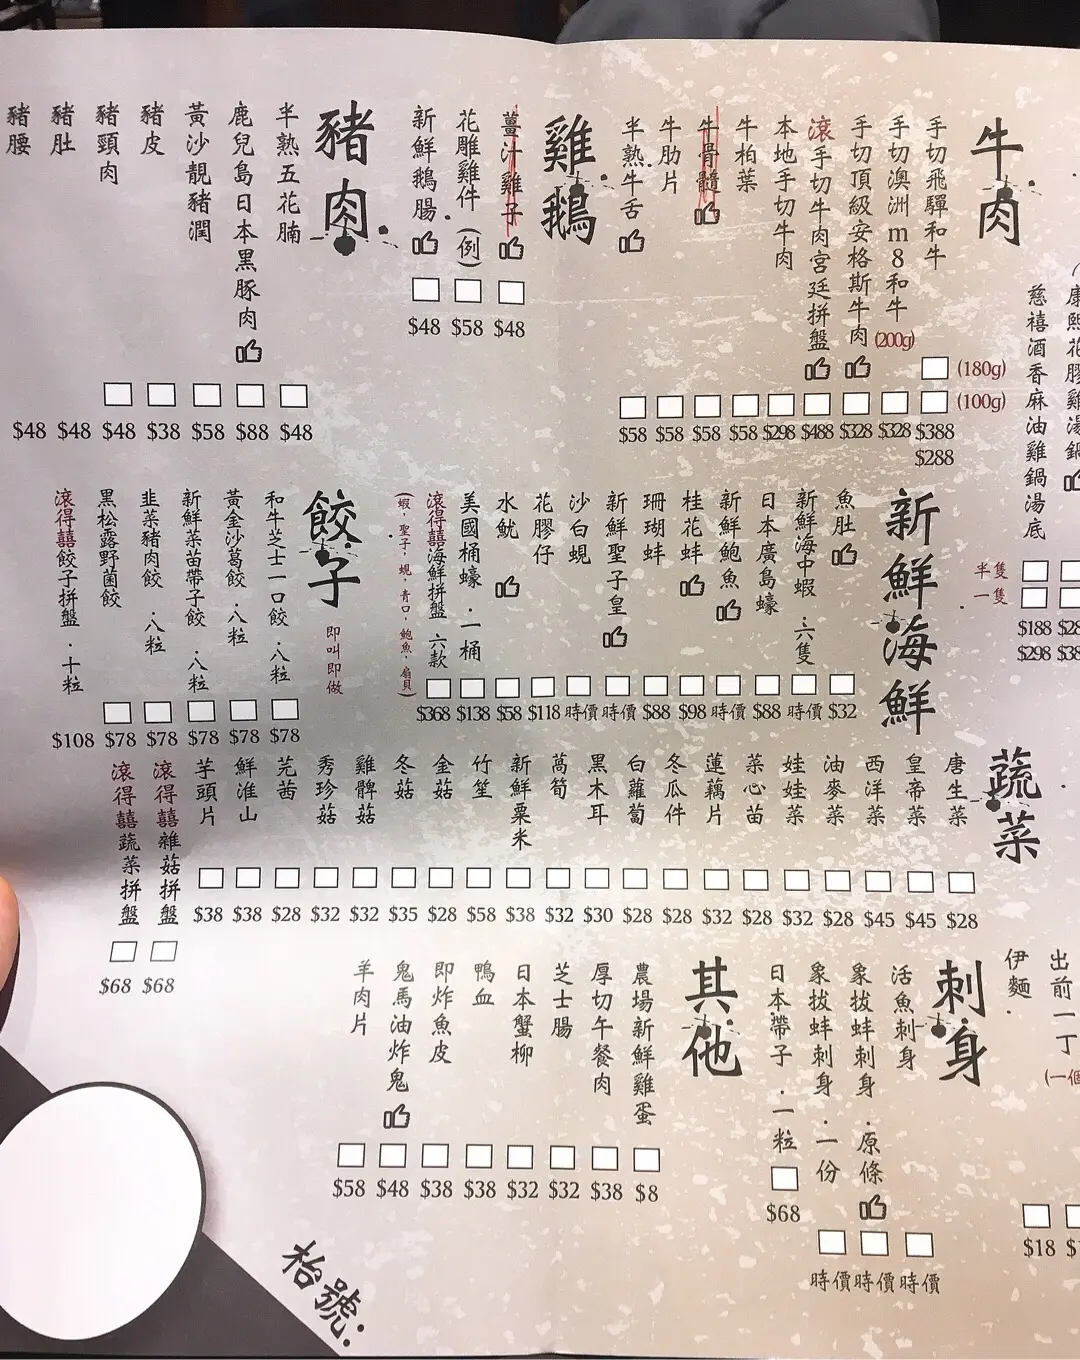 康熙花膠雞湯鍋
慈禧酒香麻油雞鍋湯底
半隻
一隻
$188
$298
牛肉
手切飛驒和牛
(180g)
(100g)
$388
$288
手切澳洲m8和牛 (200g)
$328
手切頂級安格斯牛肉
$328
滾手切牛肉宮廷拼盤
$488
本地手切牛肉
$298
牛柏葉
$58
牛骨髓
$58
牛肋片
$58
半熟牛舌
$58
雞.鵝
薑汁雞子
$48
花雕雞件(例)
$58
新鮮鵝腸
$48
豬肉
半熟五花腩
$48
鹿兒島日本黑豚肉
$88
黃沙靚豬潤
$58
豬皮
$38
豬頸肉
$48
豬肚
$48
豬腰
$48
新鮮海鮮
魚肚
$32
新鮮海中蝦.六隻
時價
日本廣島蠔
$88
新鮮鮑魚
時價
桂花蚌
$98
珊瑚蚌
$88
新鮮聖子皇
時價
沙白蜆
時價
花膠仔
$118
水魷
$58
美國桶蠔.一桶
$138
滾得囍海鮮拼盤 六款
(蝦.聖子.蜆.青口.鮑魚.扇貝)
$368
餃子
即叫即做
和牛芝士一口餃.八粒
$78
黃金沙葛餃.八粒
$78
新鮮菜苗帶子餃.八粒
$78
韭菜豬肉餃.八粒
$78
黑松露野菌餃
$78
滾得囍餃子拼盤.十粒
$108
蔬菜
唐生菜
$28
皇帝菜
$45
西洋菜
$45
油麥菜
$28
娃娃菜
$32
菜心苗
$28
蓮藕片
$32
冬瓜件
$28
白蘿蔔
$28
黑木耳
$30
萵筍
$32
新鮮粟米
$38
竹笙
$58
金菇
$28
冬菇
$35
雞髀菇
$32
秀珍菇
$32
芫茜
$28
鮮淮山
$38
芋頭片
$38
滾得囍雜菇拼盤
$68
滾得囍蔬菜拼盤
$68
出前一丁
伊麵
$18
刺身
活魚刺身
時價
象拔蚌刺身.原條
時價
象拔蚌刺身.一份
時價
日本帶子.一粒
$68
其他
農場新鮮雞蛋
$8
厚切午餐肉
$38
芝士腸
$32
日本蟹柳
$32
鴨血
$38
即炸魚皮
$38
鬼馬油炸鬼
$48
羊肉片
$58
枱號: